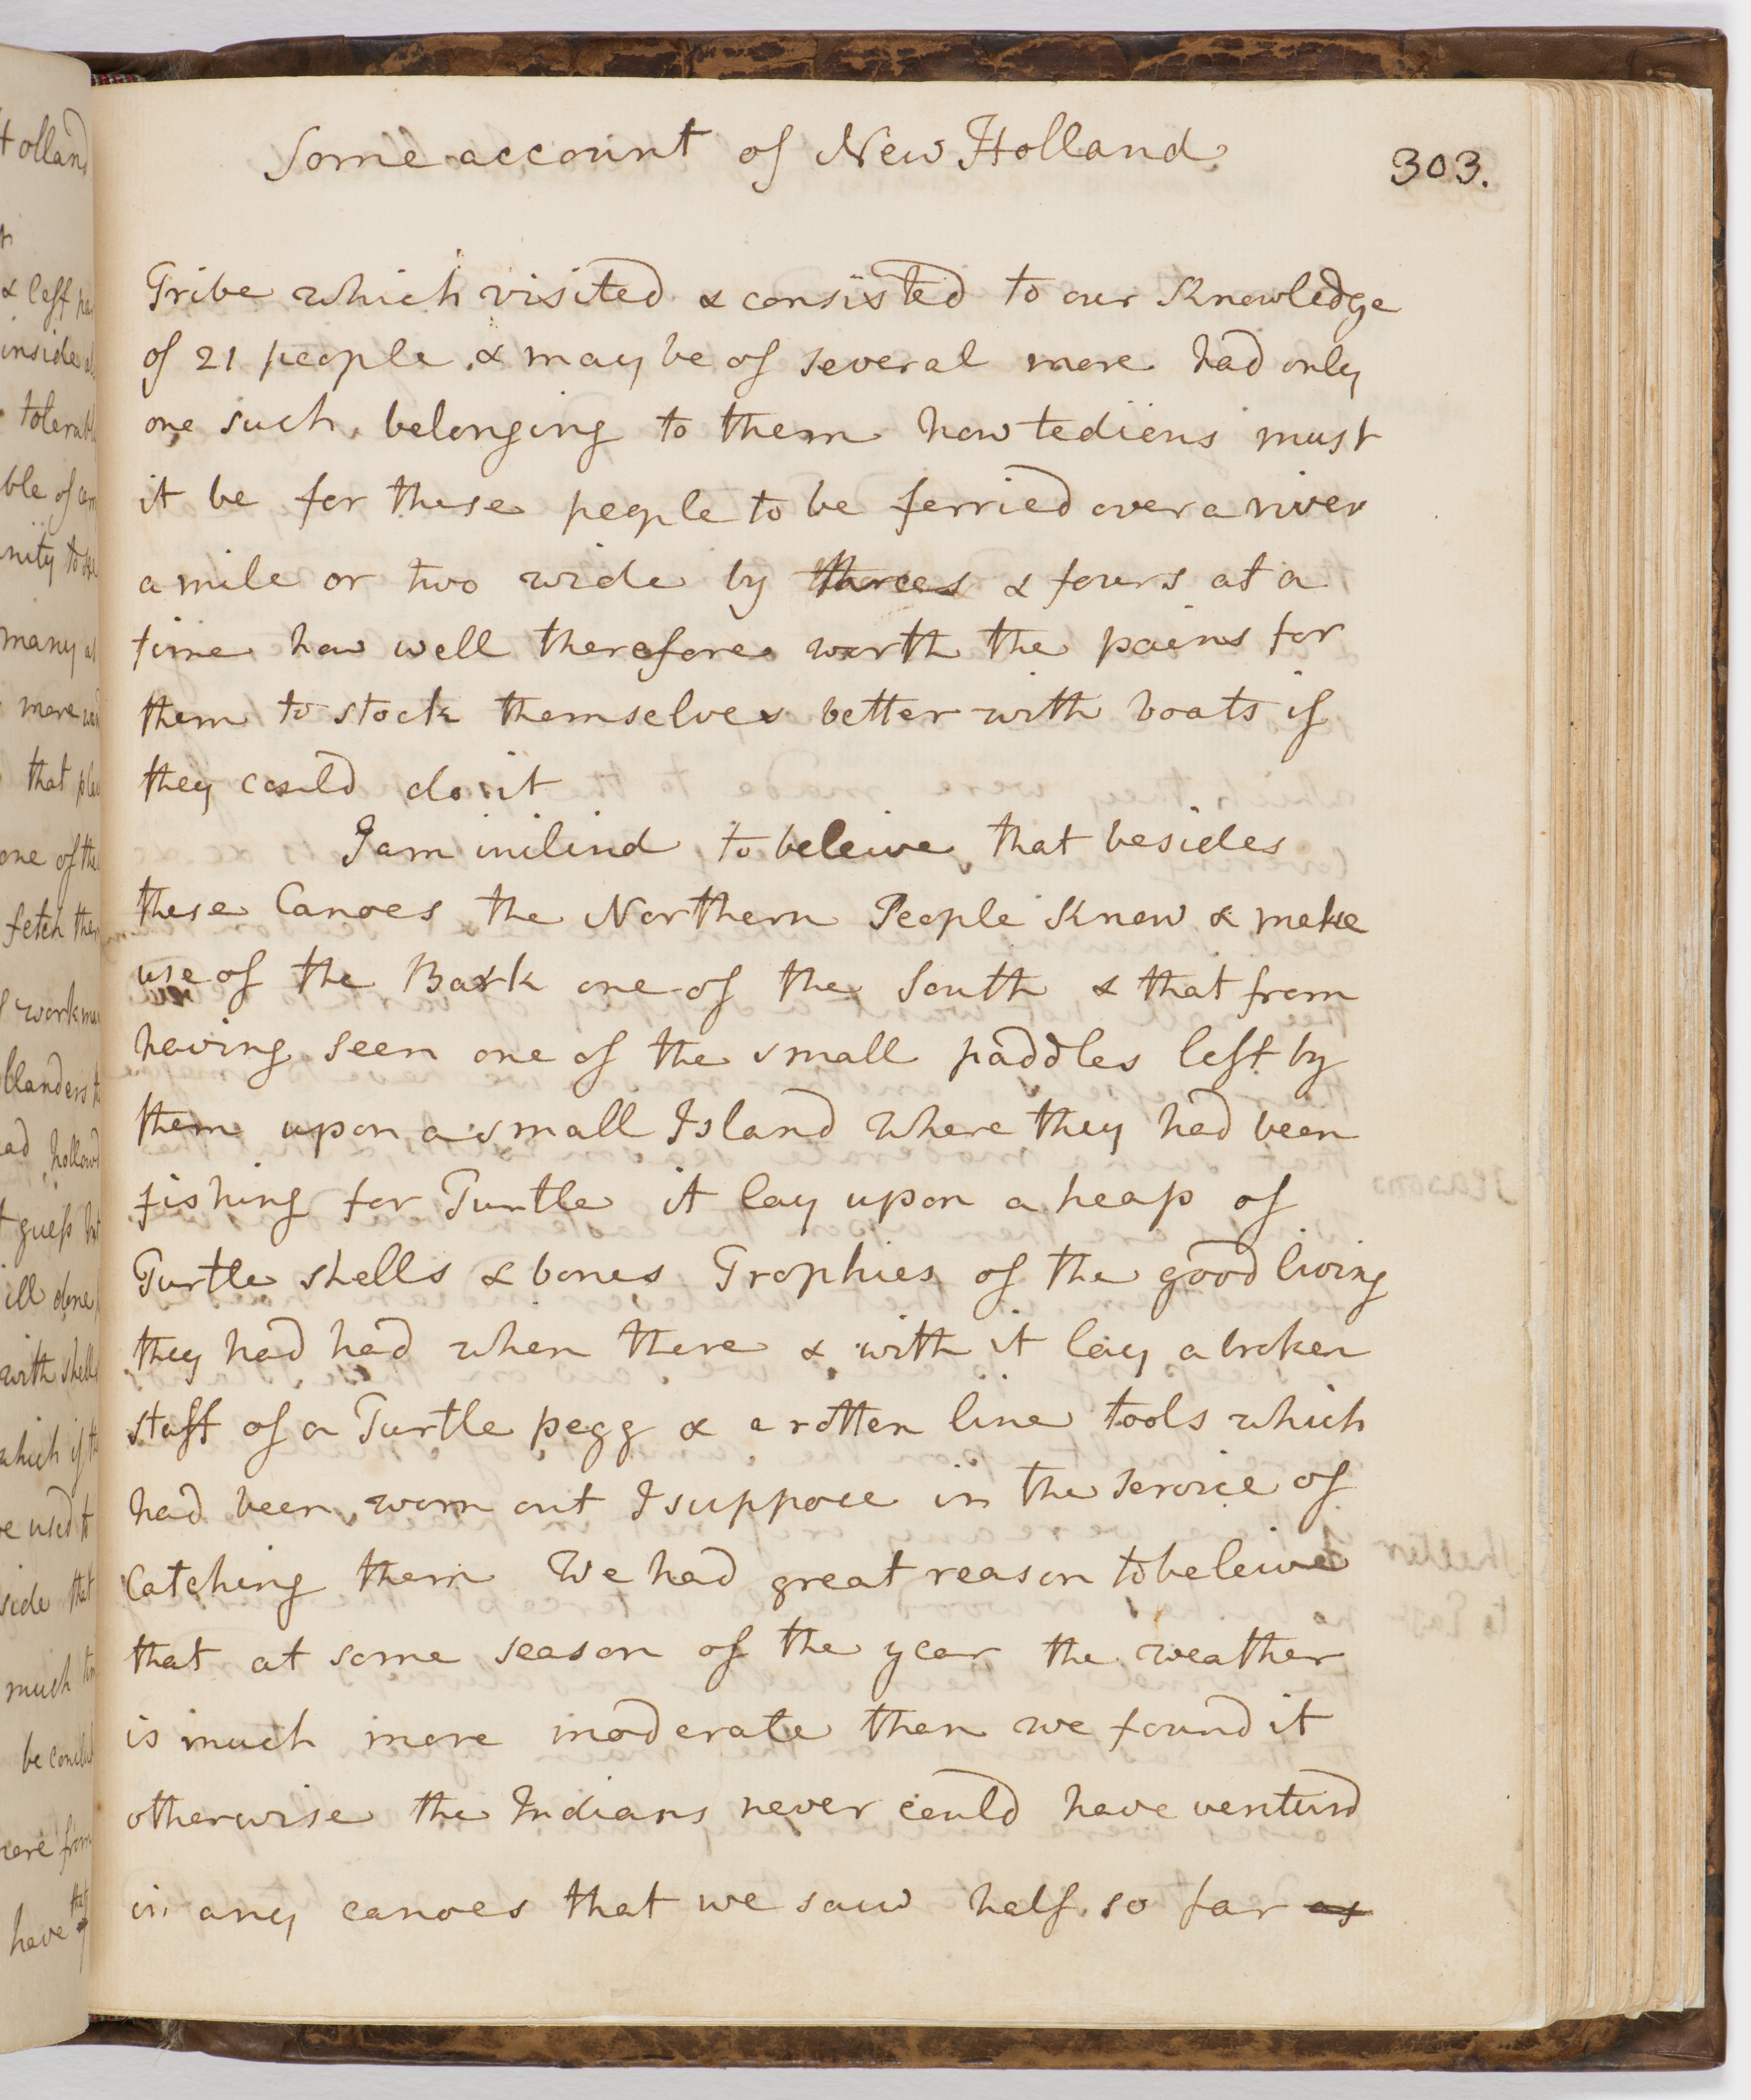 Some account of New Holland
303.
Tribe which visited & consisted to our Knowledge
of 21 people & may be of several more had only
one such belonging to them how tedious must
it be for these people to be ferried over a river
a mile or two wide by threes & fours at a
time how well therefore worth the pains for
them to stock themselves better with boats if
they could do it
I am inclind to beleive that besides
these Canoes the Northern People Know & make
use of the Bark one of the South & that from
having seen one of the small paddles left by
them upon a small Island where they had been
fishing for Turtle it lay upon a heap of
Turtle shells & bones Trophies of the good living
they had had when there & with it lay a broken
staff of a Turtle pegg & a rotten line tools which
had been worn out I suppose in the service of
Catching them We had great reason to beleive
that at some season of the year the weather
is much more moderate then we found it
otherwise the Indians never could have venturd
in any canoes that we saw half so far as